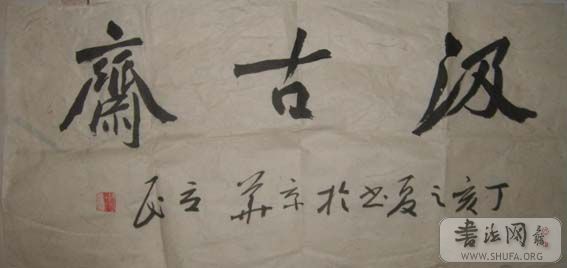 汲古齋
丁亥之夏书於京華 立民
書法网
WWW.SHUFA.ORG